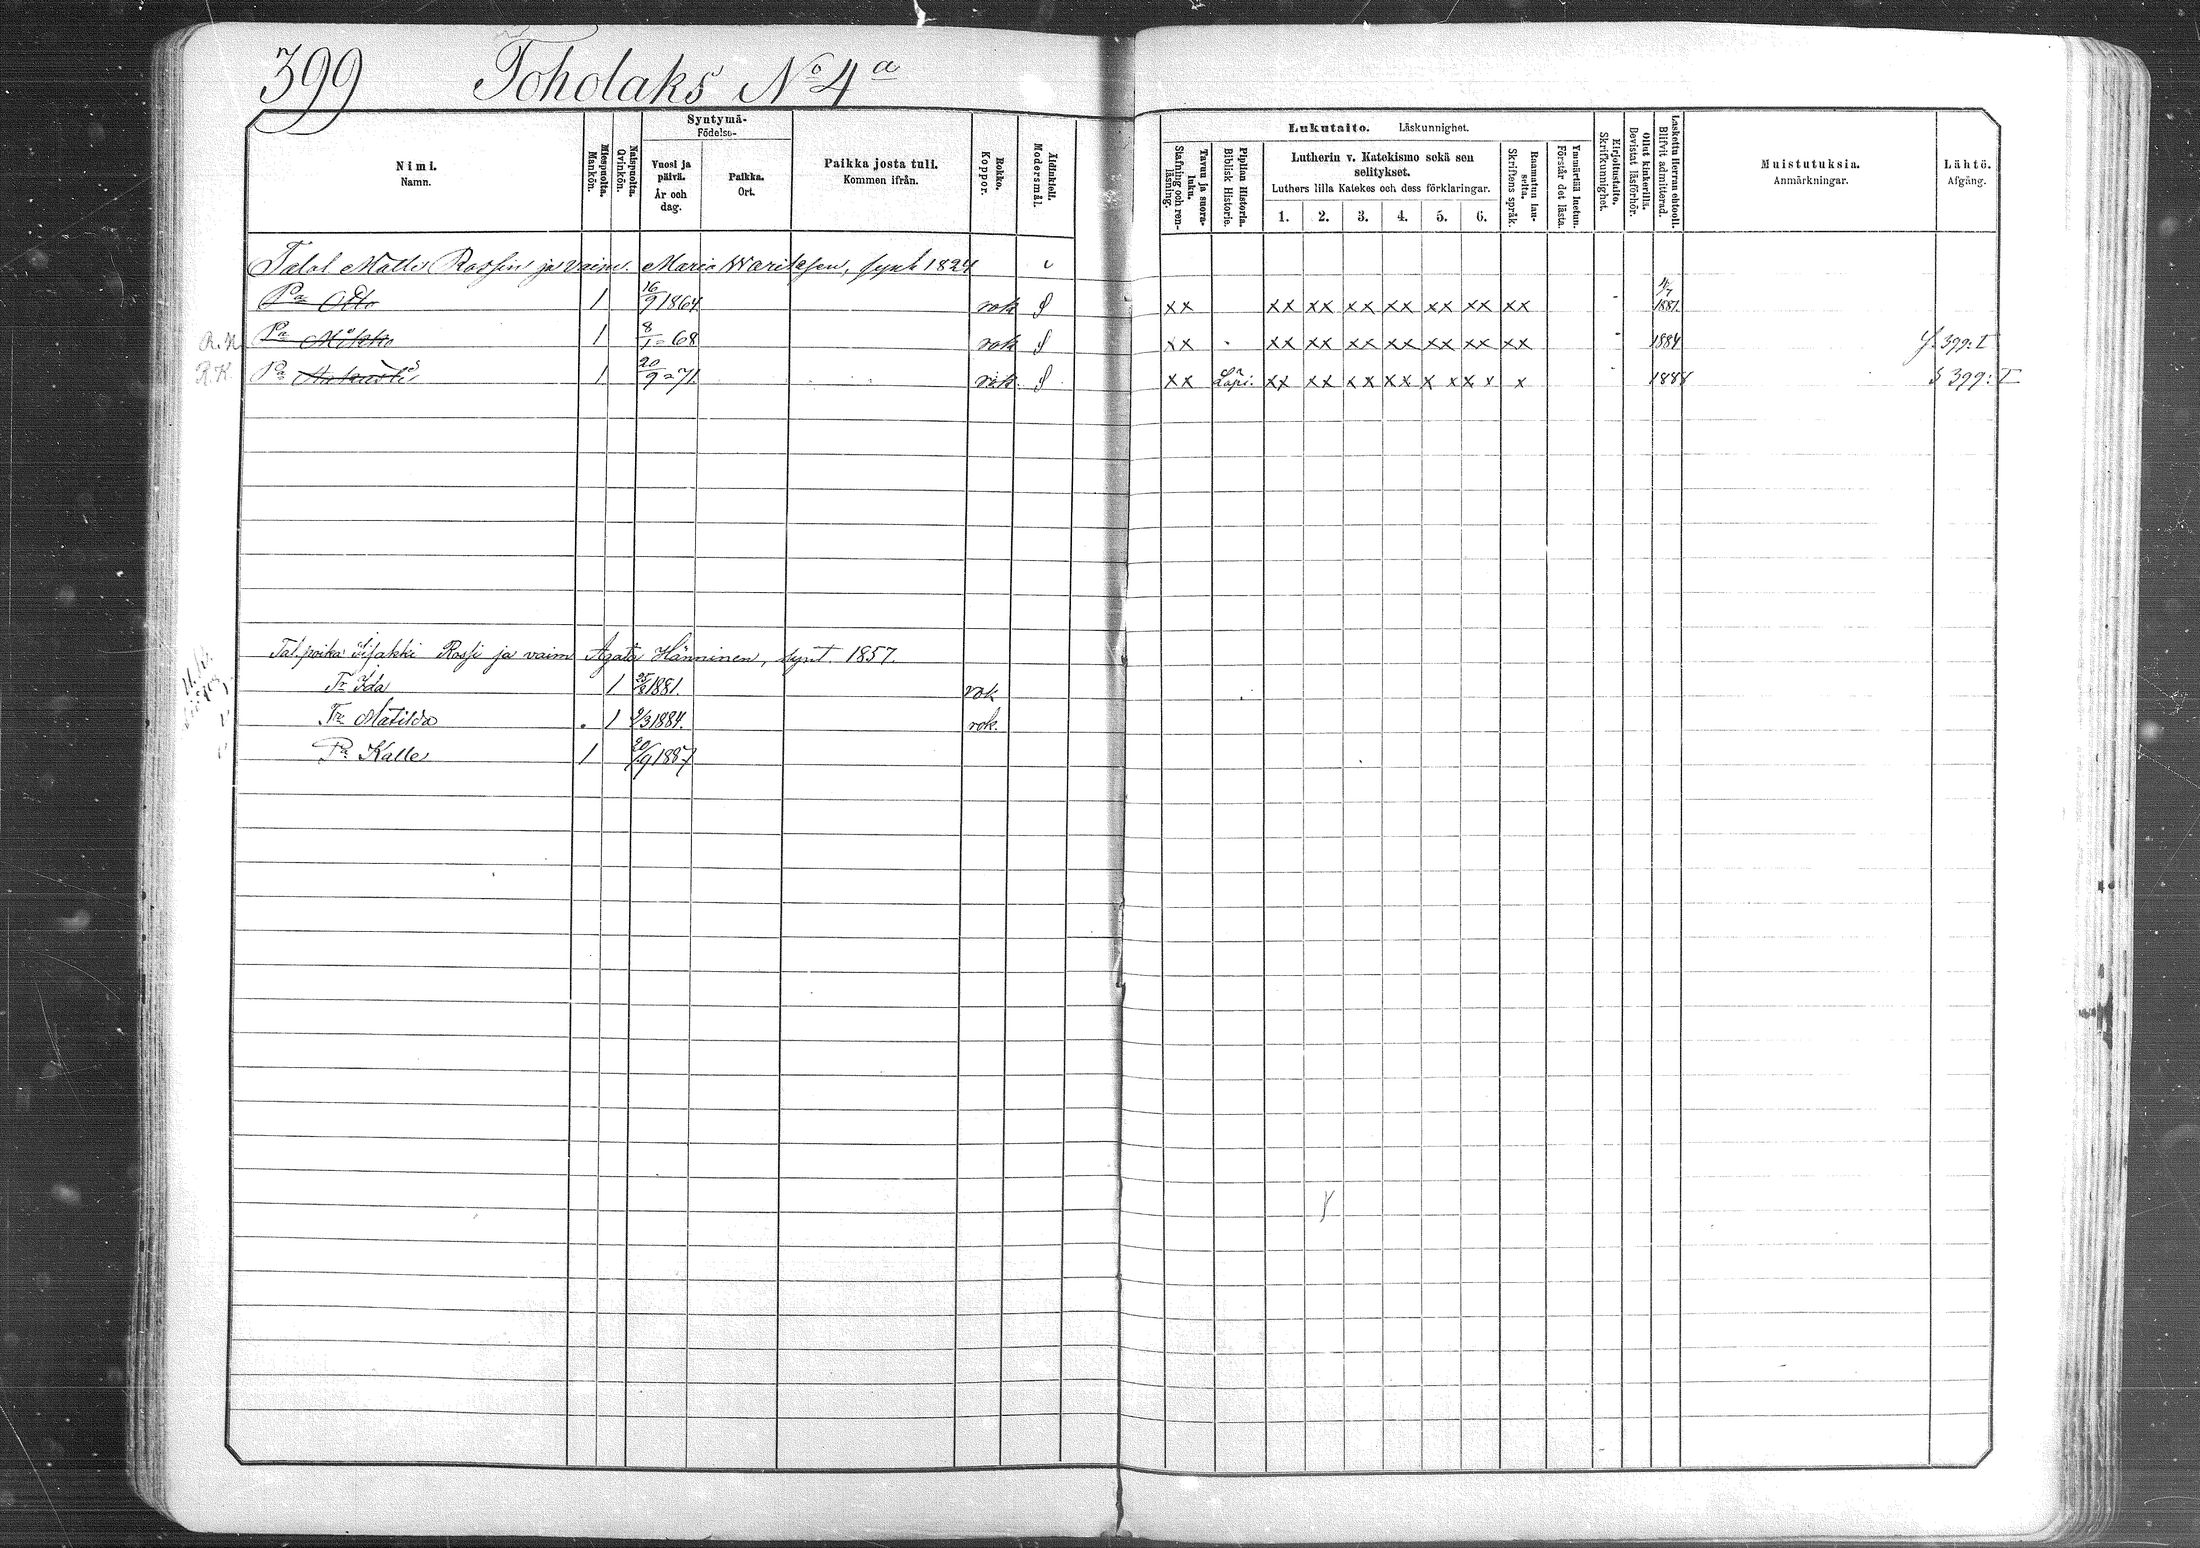 399 Toholaks No 4 a
Syntymä-
Födelse-
Nimi.
Namn.
Miespuolta.
Mankön.
Naispuolta.
Qvinkön.
Vuosi ja päivä.
År och dag.
Paikka.
Ort.
Paikka josta tuli.
Kommen ifrån.
Rokko.
Koppor.
Äidinkieli.
Modersmål.
Lukutaito. Läskunnighet.
Tavuu ja suora-luku.
Stafning och ren-läsning.
Piplian Historia.
Biblisk Historie.
Lutherin v. Katekismo sekä sen selitykset.
Luthers lilla Katekes och dess förklaringar.
1. 2. 3. 4. 5. 6.
Raamatun lau-seita.
Skriftens språk.
Ymmärtää luetun.
Förstår det lästa.
Kirjoitustaito.
Skrifkunnighet.
Ollut kinkerillä.
Bevistat läsförhör.
Laskettu Herran ehtoolle.
Blifvit admitterad.
Muistutuksia.
Anmärkningar.
Lähtö.
Afgång.
Talol Matts Rossin ja vaim. Maria Wariksen, synt. 1824
Pa Otto 1 16/9 1864 rok S xx xx xx xx xx xx xx xx 1881
R. K. Pa Mikko 1 8/1 = 68 rok S xx xx xx xx xx xx xx xx 1884 S. 399: I
R. K. Pa 1 20/9 = 71. rok. S xx Läpi. xx xx xx xx x x xx x x 1888 S 399: I
Tal. poika Iisakki Rossi ja vaim Agata Hänninen, synt. 1857.
Tr Ida 1 1881. rok
Tr Matilda 1 9/3 1884. rok.
Pa Kalle 1 20/9 1887